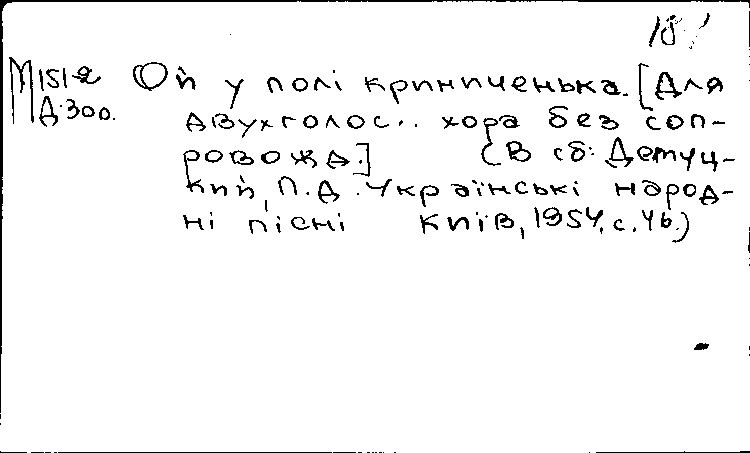 18
М151-2 Ой у полі криниченька. [Для
Д-300. двухголос.. хора без соп-
ровожд.] (В сб: Демуц-
кий, П.Д. Українські народ-
ні пісні Київ, 1954, с. 46.)